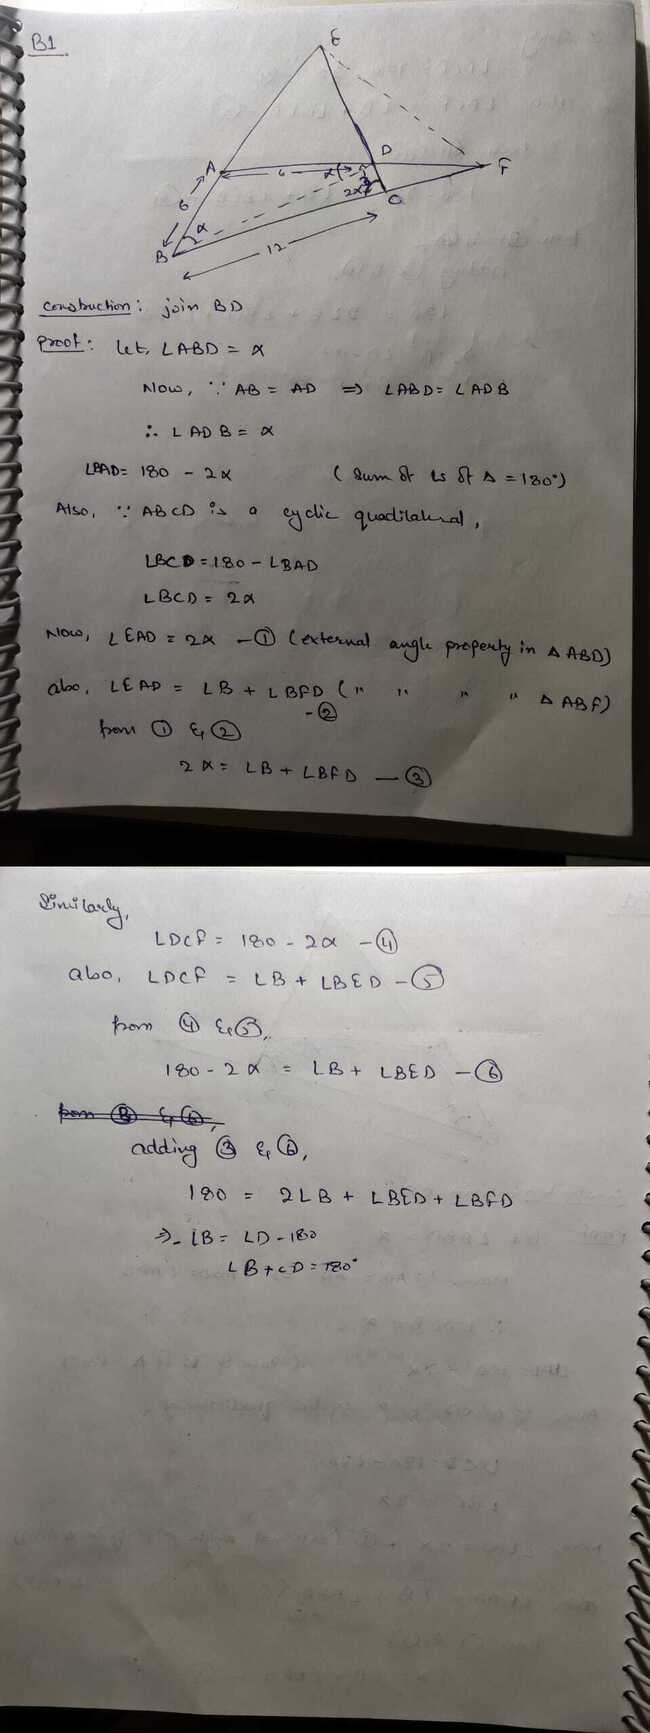 B1
E
A
6
α
D
F
6
α
2α
C
B
12
construction: join BD
Proof: let, ∠ABD = α
Now, ∵ AB = AD ⇒ ∠ABD = ∠ADB
∴ ∠ADB = α
∠BAD = 180 - 2α (sum of ∠s of Δ = 180°)
Also, ∵ ABCD is a cyclic quadilateral,
∠BCD = 180 - ∠BAD
∠BCD = 2α
Now, ∠EAD = 2α - ① (external angle property in Δ ABD)
also, ∠EAD = ∠B + ∠BFD (" " " " Δ ABF)
- ②
from ① & ②
2α = ∠B + ∠BFD - ③
Similarly,
∠DCF = 180 - 2α - ④
also, ∠DCF = ∠B + ∠BED - ⑤
from ④ & ⑤,
180 - 2α = ∠B + ∠BED - ⑥
from ③ & ⑥,
adding ③ & ⑥,
180 = 2∠B + ∠BED + ∠BFD
⇒ - ∠B = ∠D - 180
∠B + ∠D = 180°